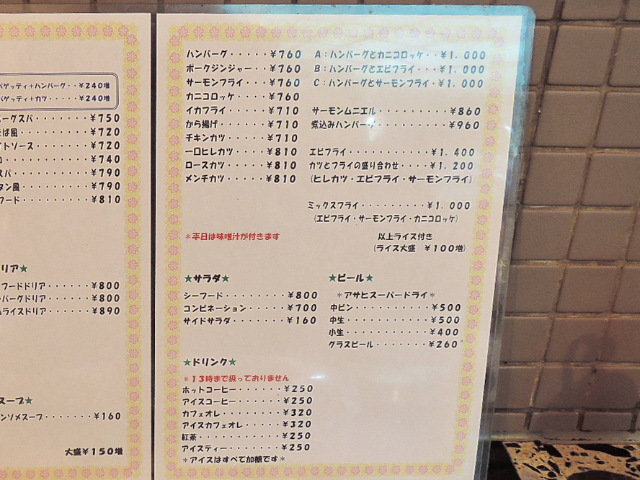 パゲッティ+ハンバーグ・・¥240増
パゲッティ+カツ・・・・¥240増
ーグスパ・・・・・・¥750
そば風・・・・・・・¥720
トソース・・・・・・¥720
・・・・・・・・¥740
スパ・・・・・・・¥790
タン風・・・・・・・¥790
フード・・・・・・・¥810
リア★
フードドリア・・・・¥800
バーグドリア・・・・¥800
ムライスドリア・・・¥890
スープ★
ンソメスープ・・・・・¥160
大盛¥150増
ハンバーグ・・・・・¥760
ポークジンジャー・・¥760
サーモンフライ・・・¥760
カニコロッケ・・・・¥760
イカフライ・・・・・¥710
から揚げ・・・・・・¥710
チキンカツ・・・・・¥710
一口ヒレカツ・・・・¥810
ロースカツ・・・・・¥810
メンチカツ・・・・・¥810
*平日は味噌汁が付きます
A:ハンバーグとカニコロッケ・・¥1,000
B:ハンバーグとエビフライ・・・¥1,000
C:ハンバーグとサーモンフライ・¥1,000
サーモンムニエル・・・・・・・¥860
煮込みハンバーグ・・・・・・・¥960
エビフライ・・・・・・・・・¥1,400
カツとフライの盛り合わせ・・・¥1,200
(ヒレカツ・エビフライ・サーモンフライ)
ミックスフライ・・・・・・・・¥1,000
(エビフライ・サーモンフライ・カニコロッケ)
以上ライス付き
(ライス大盛 ¥100増)
★サラダ★
シーフード・・・・・・・・¥800
コンビネーション・・・・・¥700
サイドサラダ・・・・・・・¥160
★ビール★
*アサヒスーパードライ*
中ビン・・・・・・・・・¥500
中生・・・・・・・・・・¥500
小生・・・・・・・・・・¥400
グラスビール・・・・・・¥260
★ドリンク★
*13時まで扱っておりません
ホットコーヒー・・・・・¥250
アイスコーヒー・・・・・¥250
カフェオレ・・・・・・・¥320
アイスカフェオレ・・・・¥320
紅茶・・・・・・・・・・¥250
アイスティー・・・・・・¥250
*アイスはすべて加糖です*